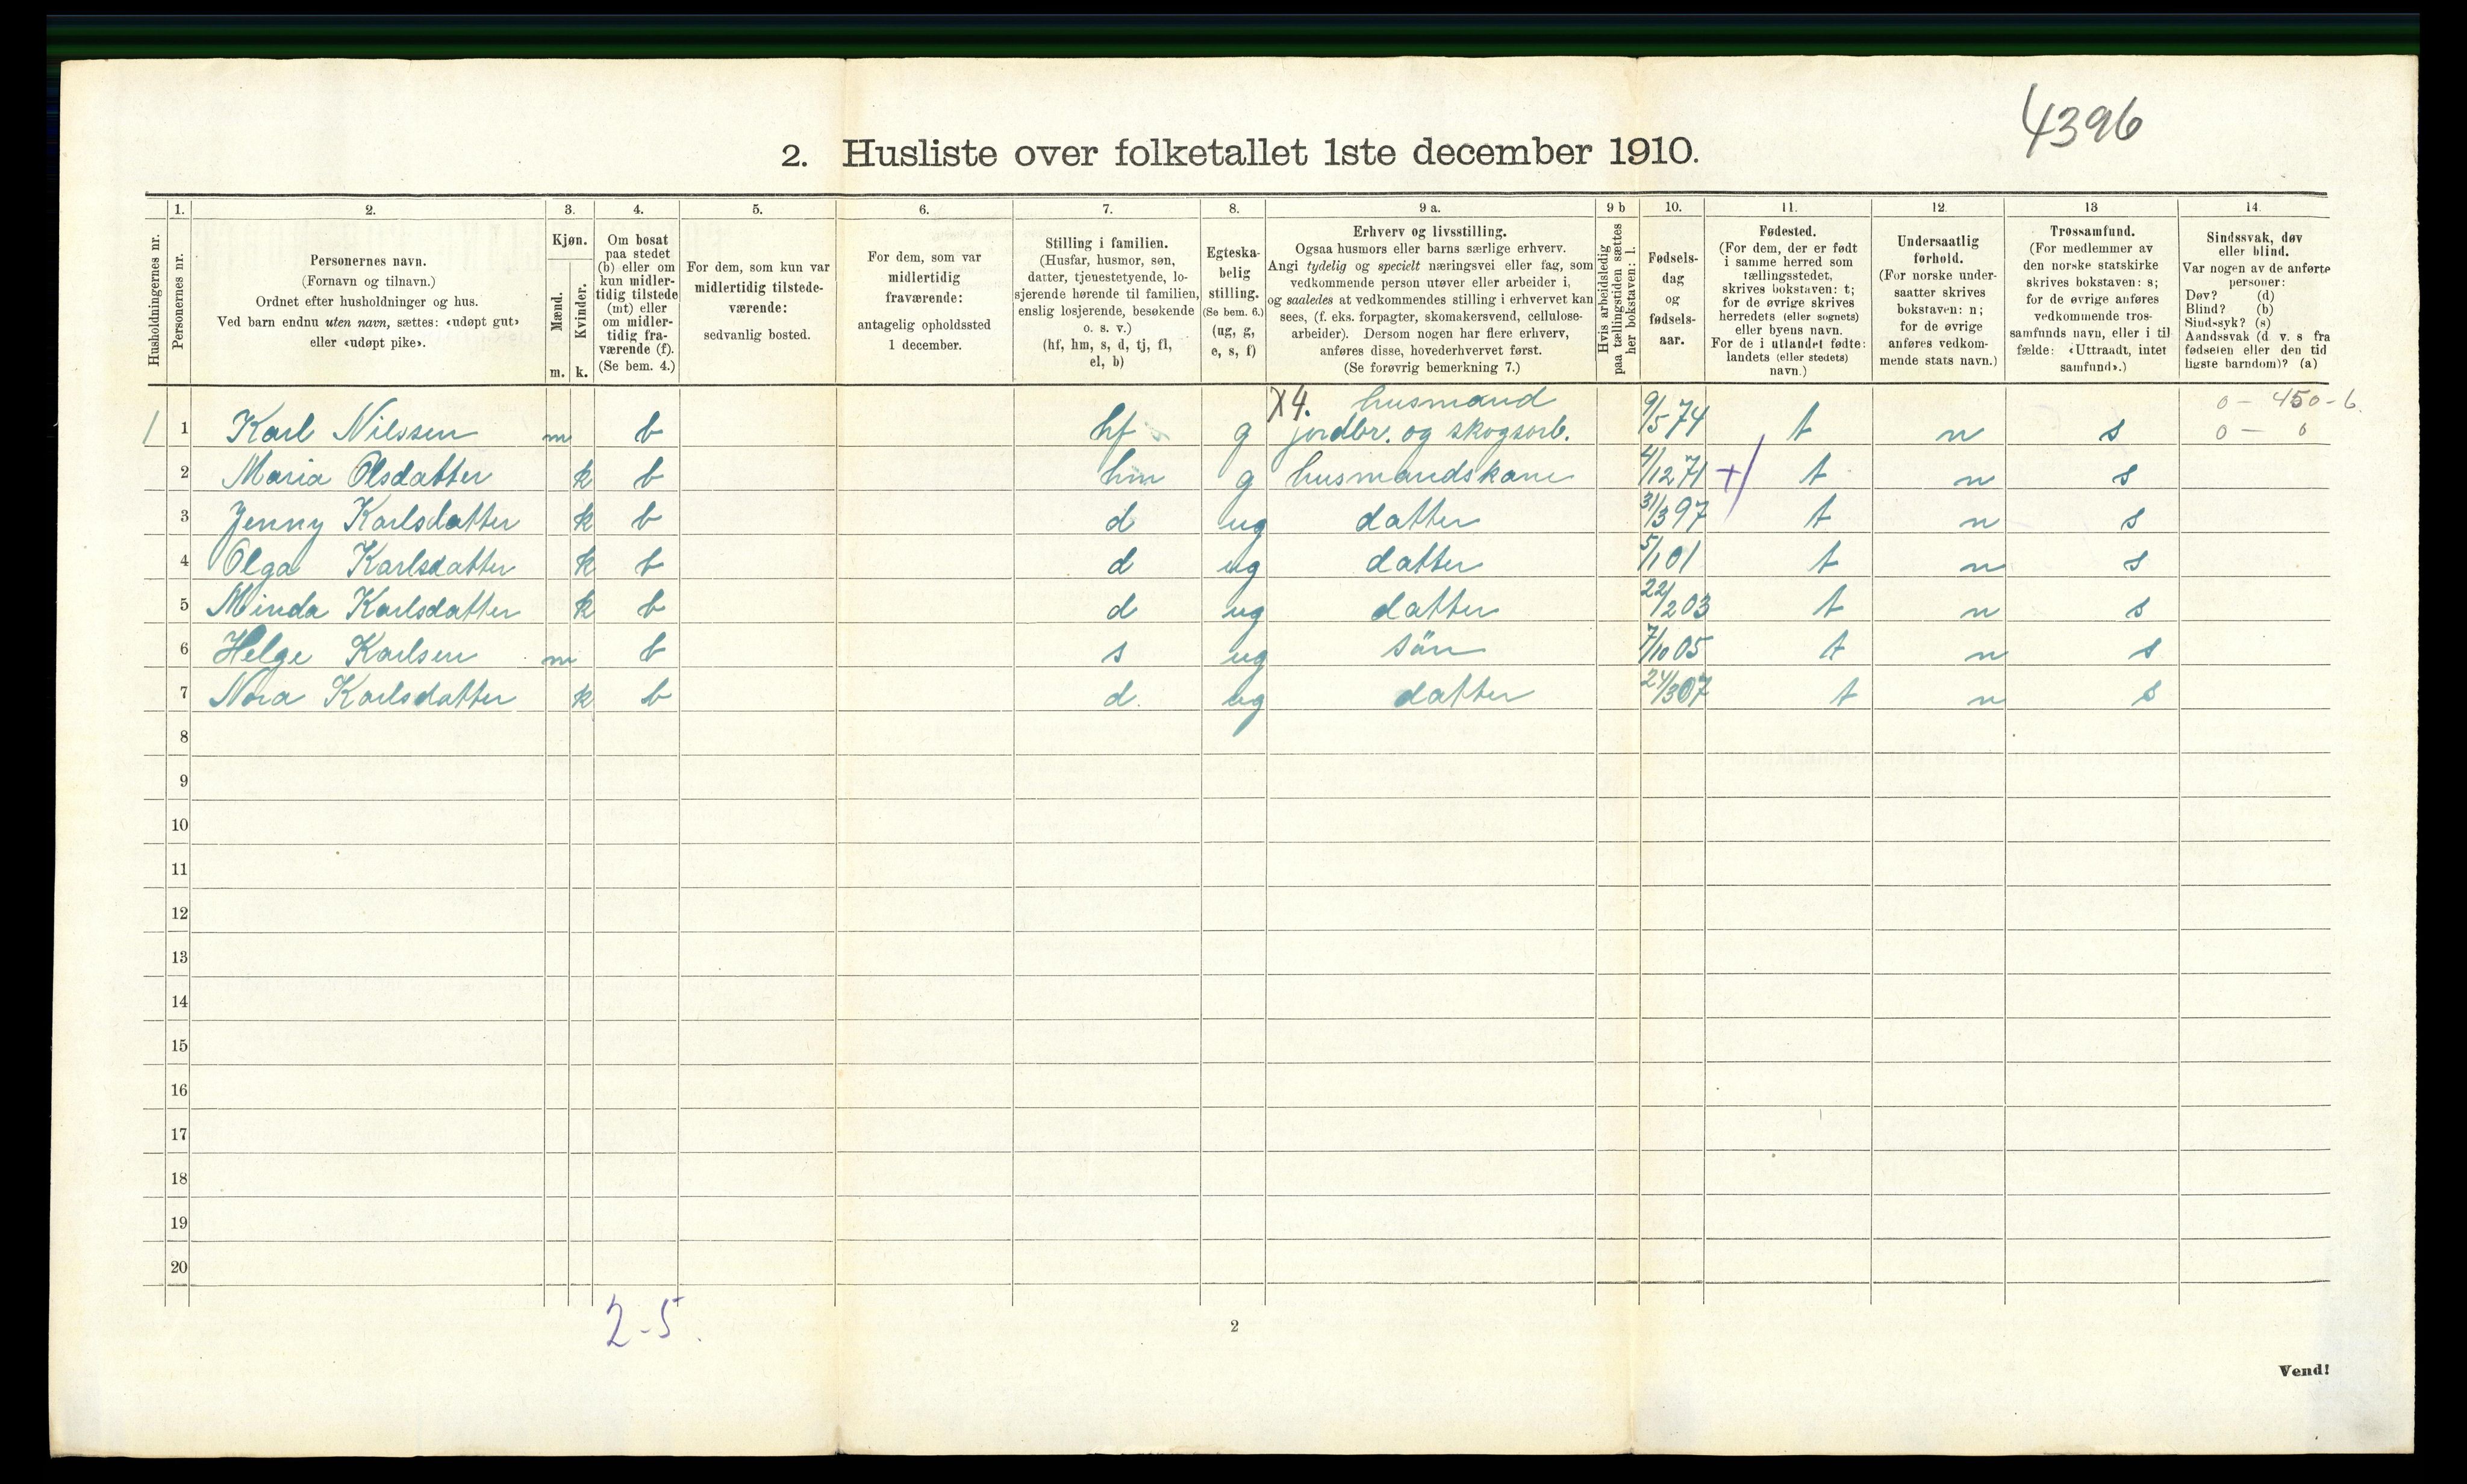 4396
2. Husliste over folketallet 1ste december 1910.
Husholdningernes nr.
1.
Personernes nr.
2.
Personernes navn.
(Fornavn og tilnavn.)
Ordnet efter husholdninger og hus.
Ved barn endnu uten navn, sættes: «udøpt gut»
eller «udøpt pike».
3.
Kjøn.
Mænd.
Kvinder.
m. k.
4.
Om bosat
paa stedet
(b) eller om
kun midler-
tidig tilstede
(mt) eller
om midler-
tidig fra-
værende (f).
(Se bem. 4.)
5.
For dem, som kun var
midlertidig tilstede-
værende:
sedvanlig bosted.
6.
For dem, som var
midlertidig
fraværende:
antagelig opholdssted
1 december.
7.
Stilling i familien.
(Husfar, husmor, søn,
datter, tjenestetyende, lo-
sjerende hørende til familien,
enslig losjerende, besøkende
o. s. v.)
(hf, hm, s, d, tj, fl,
el, b)
8.
Egteska-
belig
stilling.
(Se bem. 6.)
(ug, g,
e, s, f)
9 a.
Erhverv og livsstilling.
Ogsaa husmors eller barns særlige erhverv.
Angi tydelig og specielt næringsvei eller fag, som
vedkommende person utøver eller arbeider i,
og saaledes at vedkommendes stilling i erhvervet kan
sees, (f. eks. forpagter, skomakersvend, cellulose-
arbeider). Dersom nogen har flere erhverv,
anføres disse, hovederhvervet først.
(Se forøvrig bemerkning 7.)
9 b
Hvis arbeidsledig
paa tællingstiden sættes
her bokstaven: l.
10.
Fødsels-
dag
og
fødsels-
aar.
11.
Fødested.
(For dem, der er født
i samme herred som
tællingsstedet,
skrives bokstaven: t;
for de øvrige skrives
herredets (eller sognets)
eller byens navn.
For de i utlandet fødte:
landets (eller stedets)
navn.)
12.
Undersaatlig
forhold.
(For norske under-
saatter skrives
bokstaven: n;
for de øvrige
anføres vedkom-
mende stats navn.)
13
Trossamfund.
(For medlemmer av
den norske statskirke
skrives bokstaven: s;
for de øvrige anføres
vedkommende tros-
samfunds navn, eller i til
fælde: «Uttraadt, intet
samfund».)
14.
Sindssvak, døv
eller blind.
Var nogen av de anførte
personer:
Døv? (d)
Blind? (b)
Sindssyk? (s)
Aandssvak (d. v. s fra
fødselen eller den tid
ligste barndom)? (a)
X4. husmand 0 - 450 - 6.
1 1 Karl Nilssen m b hf g jordbr. og skogsarb. 9/5 74 t n s 0 - 0
2 Maria Olsdatter k b hm g husmandskone 4/12 71 + t n s
3 Jenny Karlsdatter k b d ug datter 31/3 97 t n s
4 Olga Karlsdatter k b d ug datter 5/1 01 t n s
5 Minda Karlsdatter k b d ug datter 22/2 03 t n s
6 Helge Karlsen m b s ug sön 7/10 05 t n s
7 Nora Karlsdatter k b d. ug datter 24/3 07 t n s
8
9
10
11
12
13
14
15
16
17
18
19
20
2-5.
2
Vend!